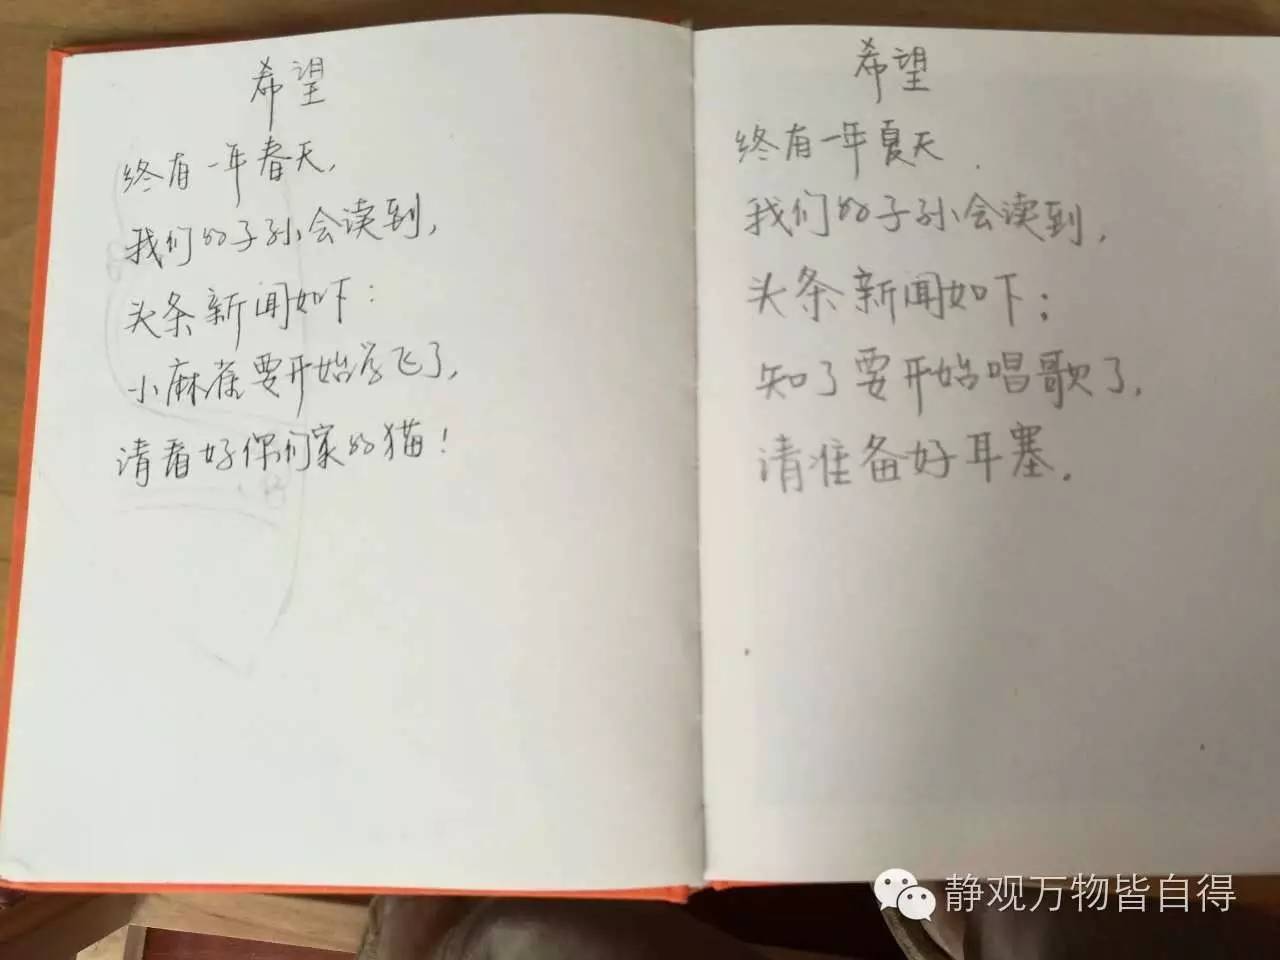 希望
终有一年春天,
我们的子孙会读到,
头条新闻如下:
小麻雀要开始学飞了,
请看好你们家的猫!
希望
终有一年夏天.
我们的子孙会读到,
头条新闻如下:
知了要开始唱歌了,
请准备好耳塞.
静观万物皆自得